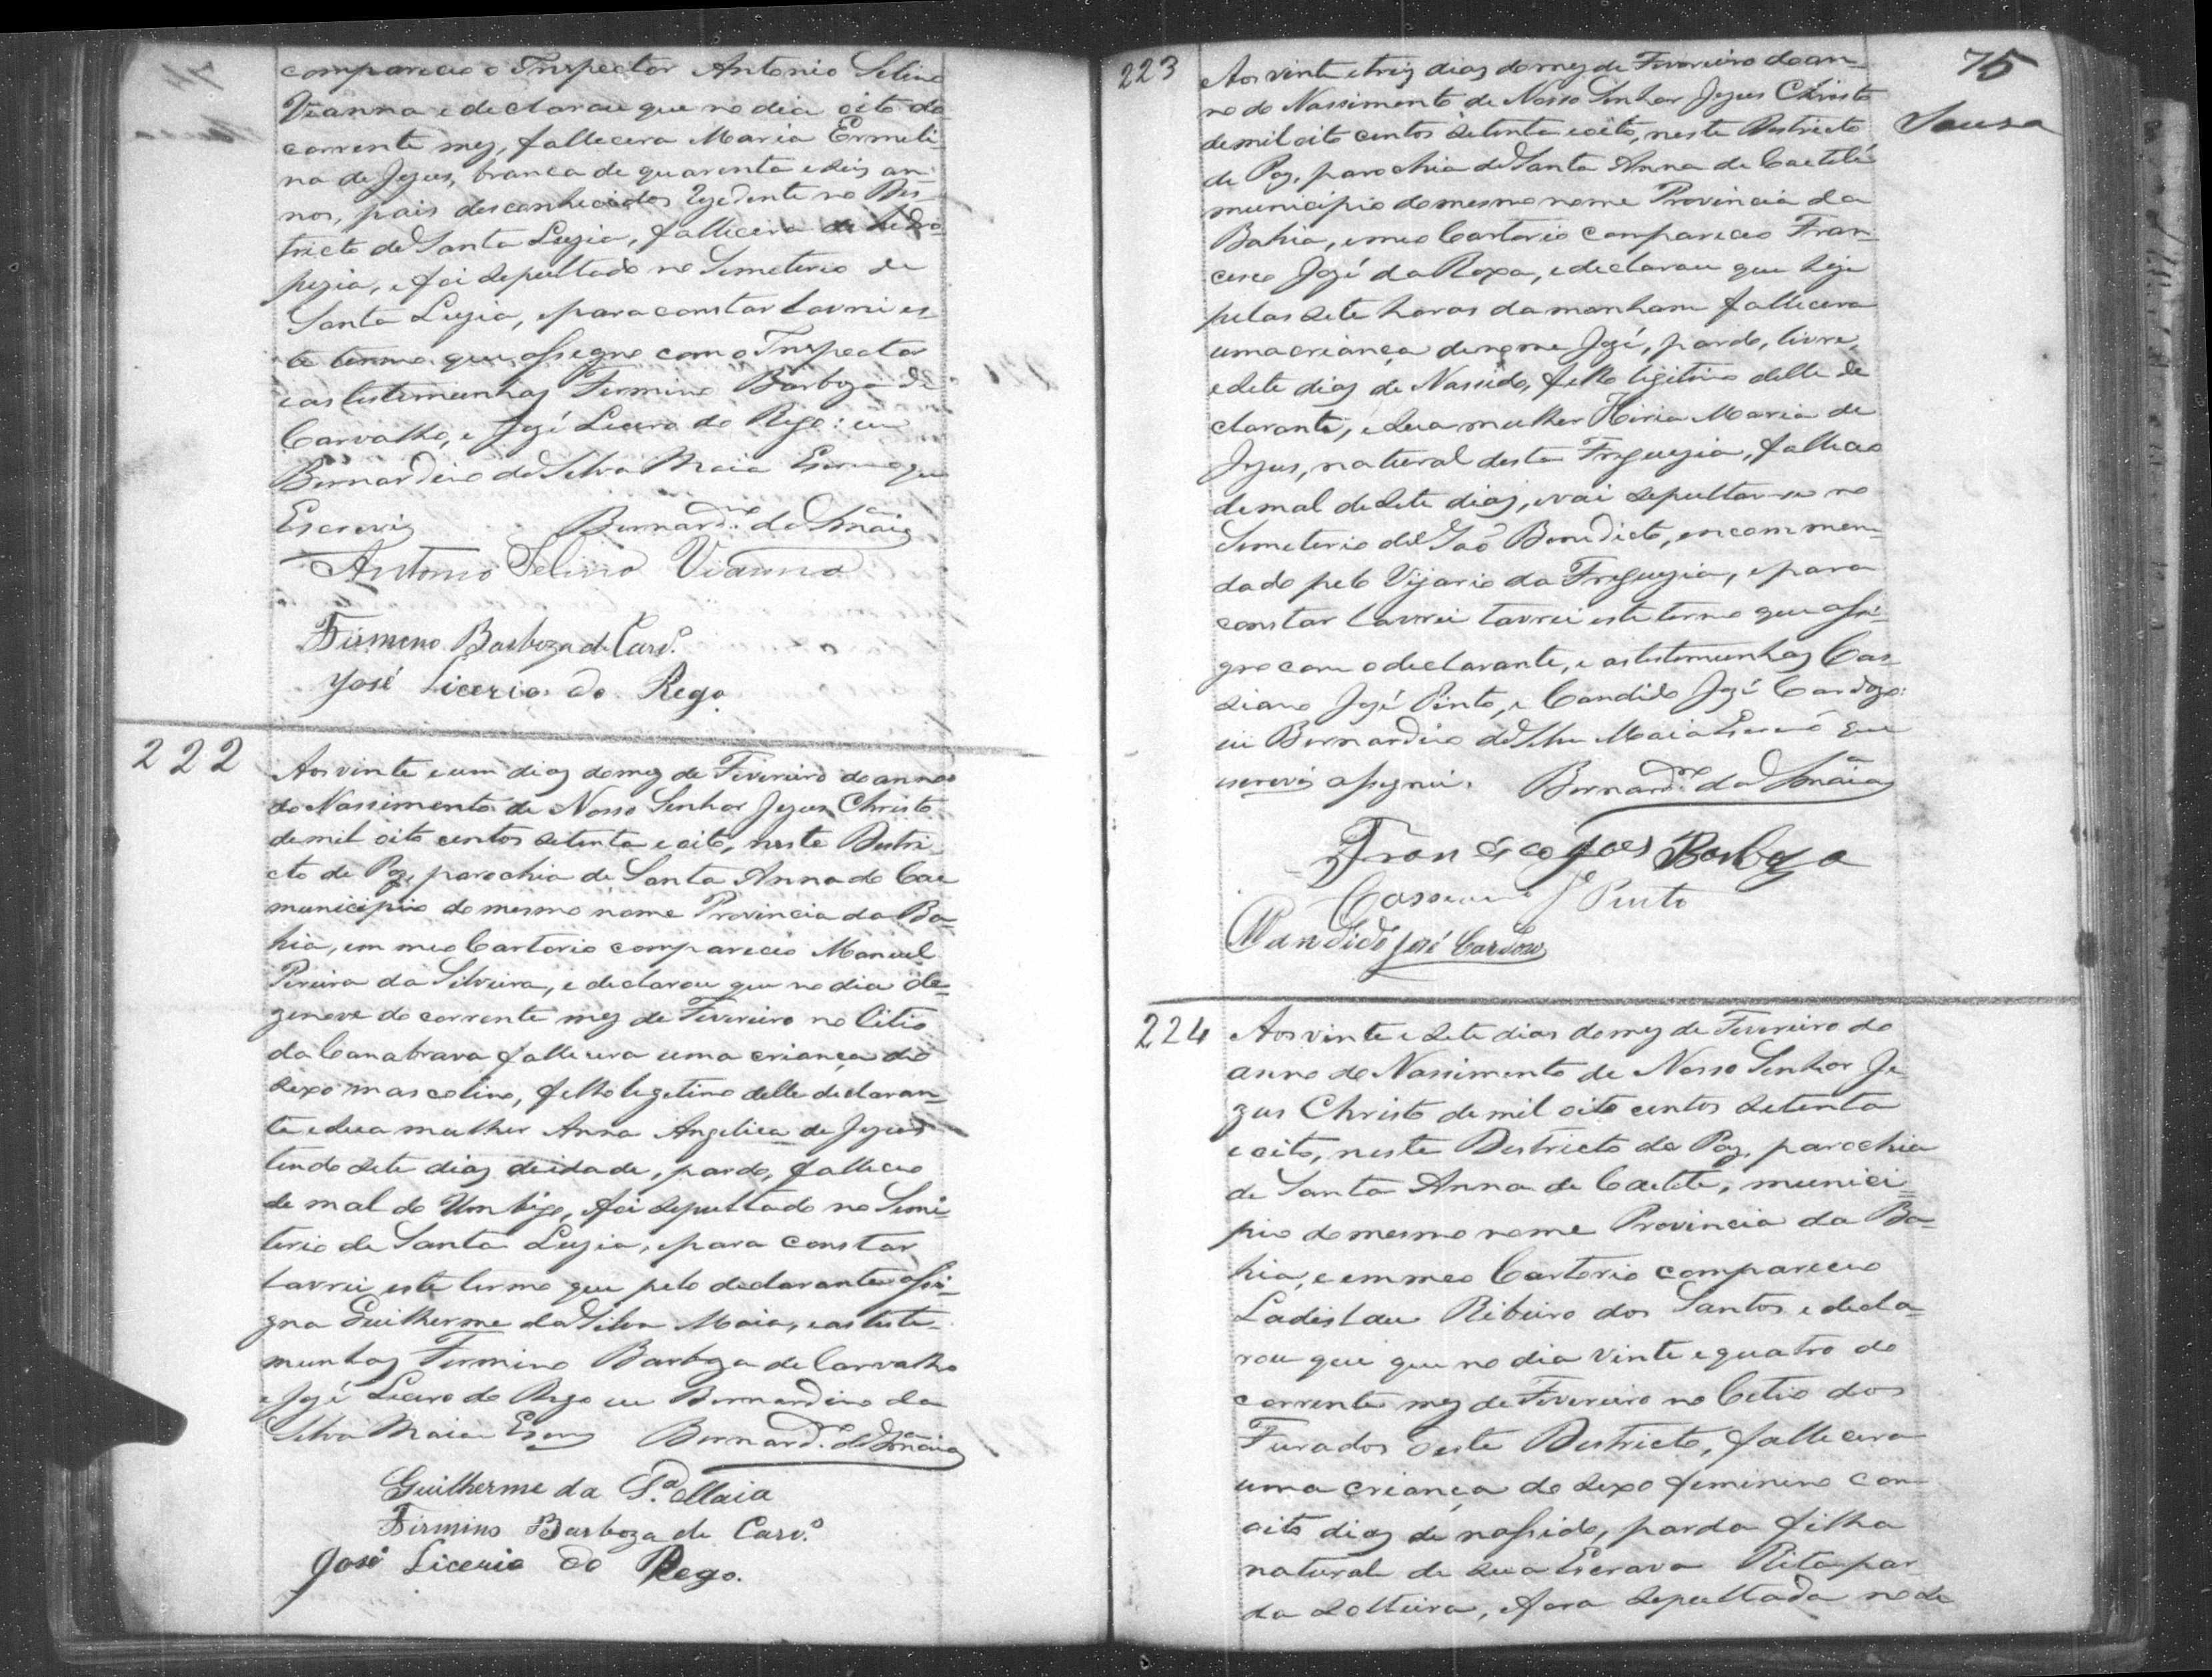 compareceo o Inspector Antonio Selino
Vianna e declarou que no dia oito do
corrente mez, fallecera Maria Ermeli-
na de Jezus, branca de quarenta e seis an-
nos, pais desconhecidos rezidente no Dis-
tricto de Santa Luzia, fallecera de hidro-
pezia, e foi sepultado no Semeterio de
Santa Luzia, e para constar lavrei es-
te termo que assegno com o Inspector
e as testemunhas Firmino Barboza de
Carvalho, e Jozé Licero do Rego: eu
Bernardino da Silva Maia Escrivão que
Escrevi Bernard.no da S.a Maia
Antonio Selino Vianna
Firmino Barboza de Carv.o
José Licerio do Rego.
222
Aos vinte e um dias do mez de Fivireiro do anno
do Nassimento de Nosso Senhor Jezus Christo
de mil oito centos setenta e oito, neste Destri-
cto de Paz, parochia de Santa Anna do Cae
municipio do mesmo nome Provincia da Ba-
hia, em meo Cartorio compareceo Manuel
Pereira da Silveira, e declarou que no dia de-
zenove do corrente mez de Fivireiro no Citio
da Canabrava fallecera uma criança do
sexo mascolino, felho legetimo delle declaran-
te e sua mulher Anna Angelica de Jezus
tendo sete dias de idade, pardo, falleceo
de mal do Umbigo, foi sepultado no Semi-
terio de Santa Luzia, e para constar
lavrei este termo que pelo declarante assi-
gna Guilherme da Silva Maia, e as teste-
munhas Firmino Barboza de Carvalho
e Jozé Licero do Rego eu Bernardino da
Silva Maia Escrivão Bernard.no da S.a Maia
Guilherme da S.a Maia
Firmino Barboza de Carv.o
José Licerio do Rego.
75
Souza
223
Aos vinte e treis dias do mez de Fivireiro do an-
no do Nassimento de Nosso Senhor Jezus Christo
de mil oito centos setenta e oito, neste Destricto
de Paz, parochia de Santa Anna de Caetité
municipio do mesmo nome Provincia da
Bahia, e meo Cartorio compareceo Fran-
cesco Jozé da Roxa, e declarou que hoje
pelas sete horas da manham fallecera
uma criança de nome Jozé, pardo, livre,
e sete dias de Nassido, felho ligitimo delle de
clarante, e sua mulher Hiria Maria de
Jezus, natural desta Freguezia, falleceo
de mal de sete dias, e vai sepultar-se no
Semeterio de São Benedicto, encommen-
dado pelo Vigario da Freguezia, e para
constar lavrei lavrei este termo que assi-
gno com o declarante, e as testemunhas Cas-
siano Jozé Pinto, e Candido Jozé Cardozo:
eu Bernardino da Silva Maia Escrivão que
escrevi assignei. Bernard.no da S.a Maia
Francisco Joes Barboza
Cassiano J.e Pinto
Candido José Cardoso
224
Aos vinte e sete dias do mez de Fivireiro do
anno do Nassimento de Nosso Senhor Je-
zus Christo de mil oito centos setenta
e oito, neste Destricto de Paz, parochia
de Santa Anna de Caetité, munici-
pio do mesmo nome Provincia da Ba-
hia, e em meo Cartorio compareceo
Ladislau Ribeiro dos Santos e decla-
rou que que no dia vinte e quatro do
corrente mez de Fivireiro no Citio dos
Furados deste Destricto, fallecera
uma criança do sexo feminino com
oito dias de nassido, parda filha
natural de sua Escrava Rita par-
da solteira, e fora sepultada no de